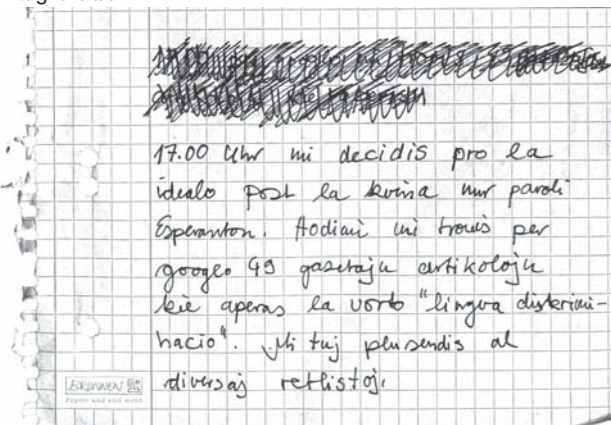 17.00 Uhr mi decidis pro la
idealo post la kvina nur paroli
Esperanton. Hodiaŭ mi trovis per
googlo 49 gazetajn artikolojn
kie aperas la vorto "lingva diskrimi-
nacio". Mi tuj plusendis al
diversaj retlistoj.
BRUNNEN
Papier und viel mehr